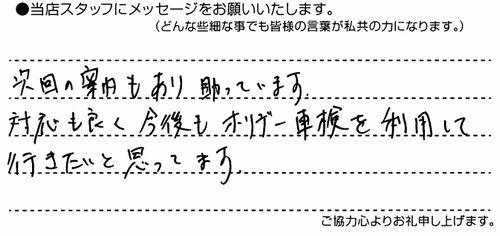 ●当店スタッフにメッセージをお願いいたします。
(どんな些細な事でも皆様の言葉が私共の力になります。)
次回の案内もあり助っています.
対応も良く今後もホリデー車検を利用して
行きたいと思ってます.
ご協力心よりお礼申し上げます。